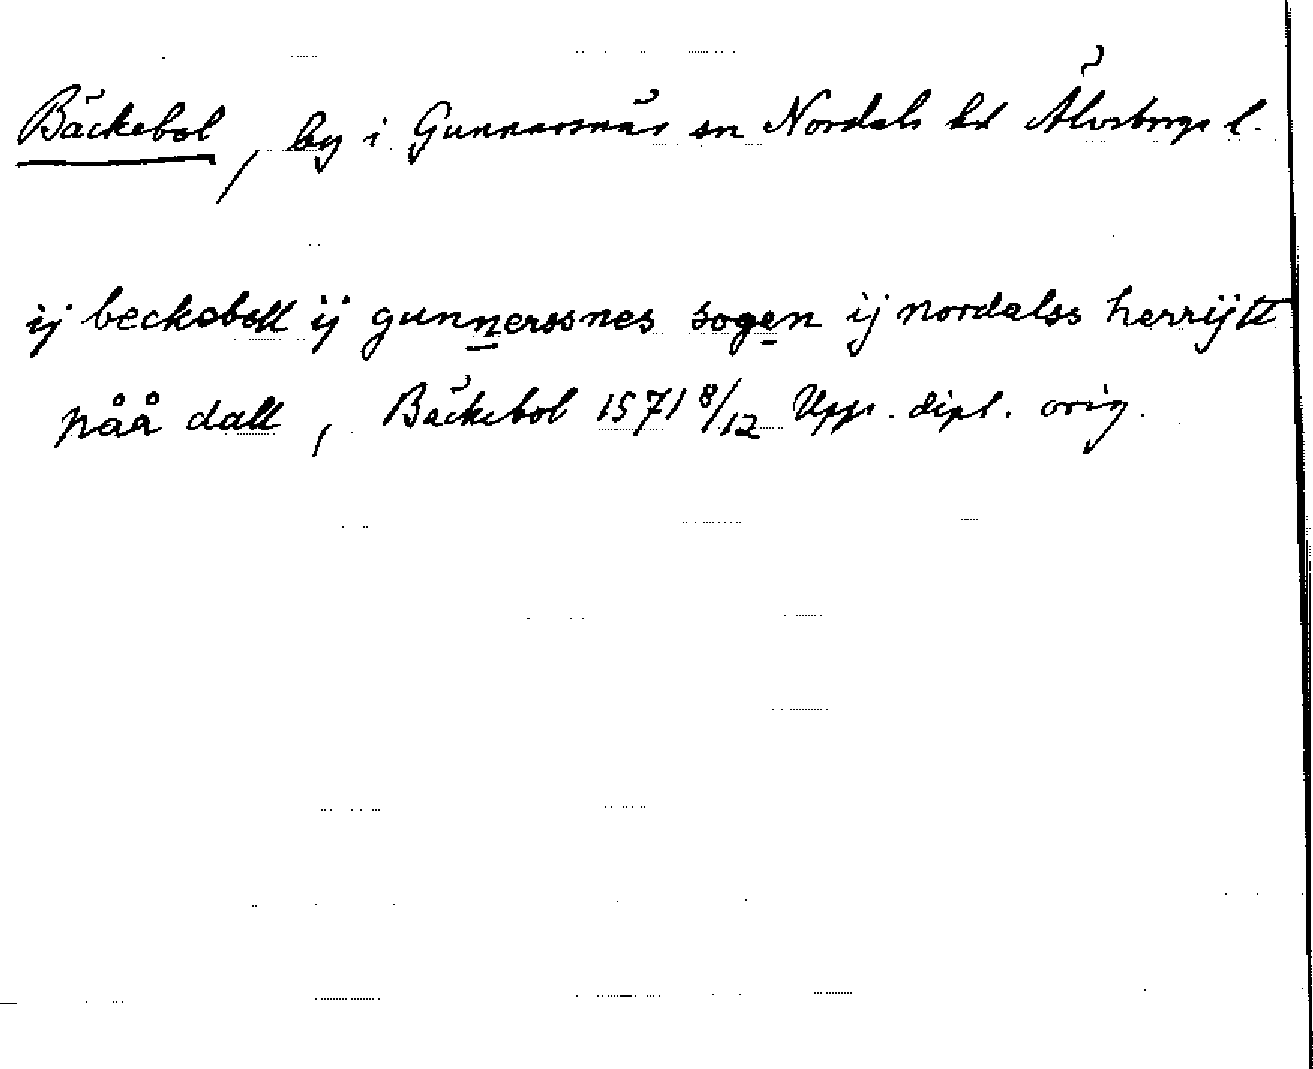 Bäckebol, by i Gunnarsnäs sn Nordals hd Älvsborgs l.
ij beckeboll ij gunnerssnes sogen ij nordalss herrijtt
påå dall, Bäckebol 1571 8/12 Upps. dipl. orig.